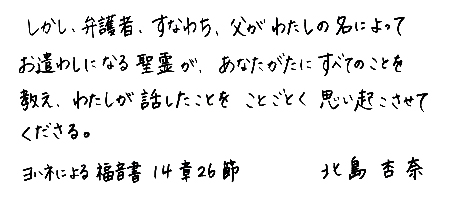 しかし、弁護者、すなわち、父がわたしの名によって
お遣わしになる聖霊が、あなたがたにすべてのことを
教え、わたしが話したことをことごとく思い起こさせて
くださる。
ヨハネによる福音書 14章26節 北島杏奈